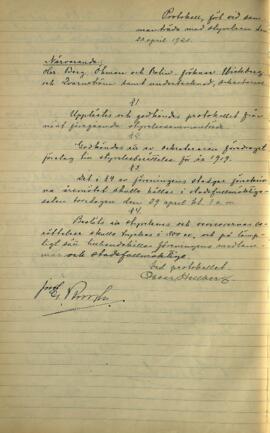 Protokoll, fört vid sam-
manträde med styrelsen den
23 april 1920.
Närvarande:
Herr Berg, Öhman och Bolin, fröknar
och Qvarnström samt undertecknad, sekreterare
§1
Upplästes och godkändes protokollet från
näst föregående styrelsesammanträde
§2
Godkändes av sekreteraren föredraget
förslag till styrelseberättelse för år 1919.
§3
Det i §9 av föreningens stadgar föreskriv-
na årsmötet skulle hållas i stadsfullmäktige-
salen torsdagen den 29 april kl.
§4
Beslöts att styrelsens och revisorernas be-
rättelser skulle tryckas i 800 ex. och på lämp-
ligt sätt tillhandahållas föreningens medlem-
mar och stadsfullmäktige.
Vid protokollet
Oscar Hellberg
Just.